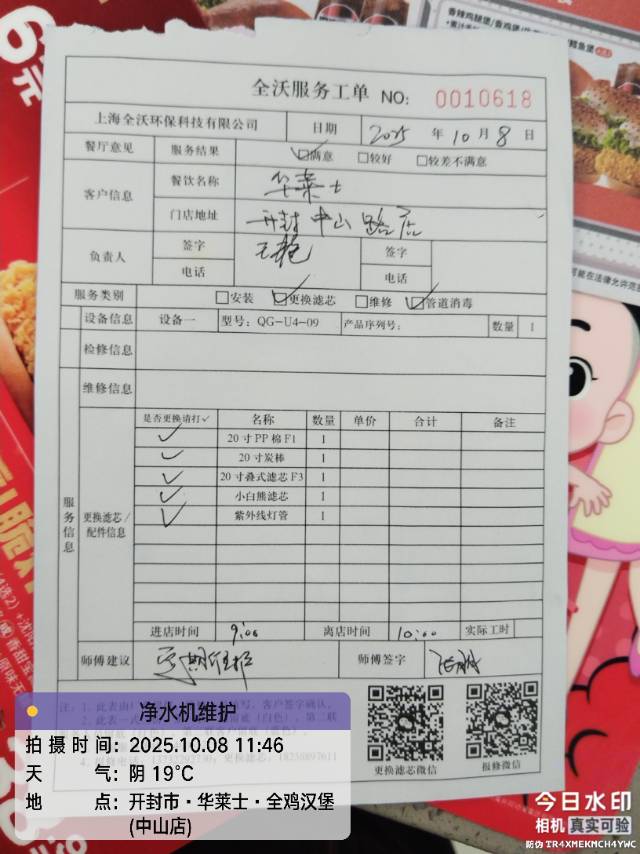 香辣鸡腿堡/香鸡堡/
6元
全沃服务工单 NO: 0010618
上海全沃环保科技有限公司 日期 2025 年 10 月 8 日
餐厅意见 服务结果 ☑满意 □较好 □较差不满意
客户信息 餐饮名称 华莱士
门店地址 开封中山路店
负责人 签字 签字
电话 电话
服务类别 □安装 ☑更换滤芯 □维修 ☑管道消毒
设备信息 设备一 型号: QG-U4-09 产品序列号: 数量 1
检修信息
维修信息
服务信息 更换滤芯/配件信息 是否更换请打✓ 名称 数量 单价 合计 备注
✓ 20寸PP棉F1 1
✓ 20寸炭棒 1
✓ 20寸叠式滤芯F3 1
✓ 小白熊滤芯 1
✓ 紫外线灯管 1
进店时间 9:00 离店时间 10:00 实际工时
师傅建议 定期维护 师傅签字
更换滤芯微信 报修微信
净水机维护
拍摄时间: 2025.10.08 11:46
天气: 阴 19℃
地点: 开封市·华莱士·全鸡汉堡
(中山店)
今日水印
相机 真实可验
防伪 TR4XMEKMCH4YWC